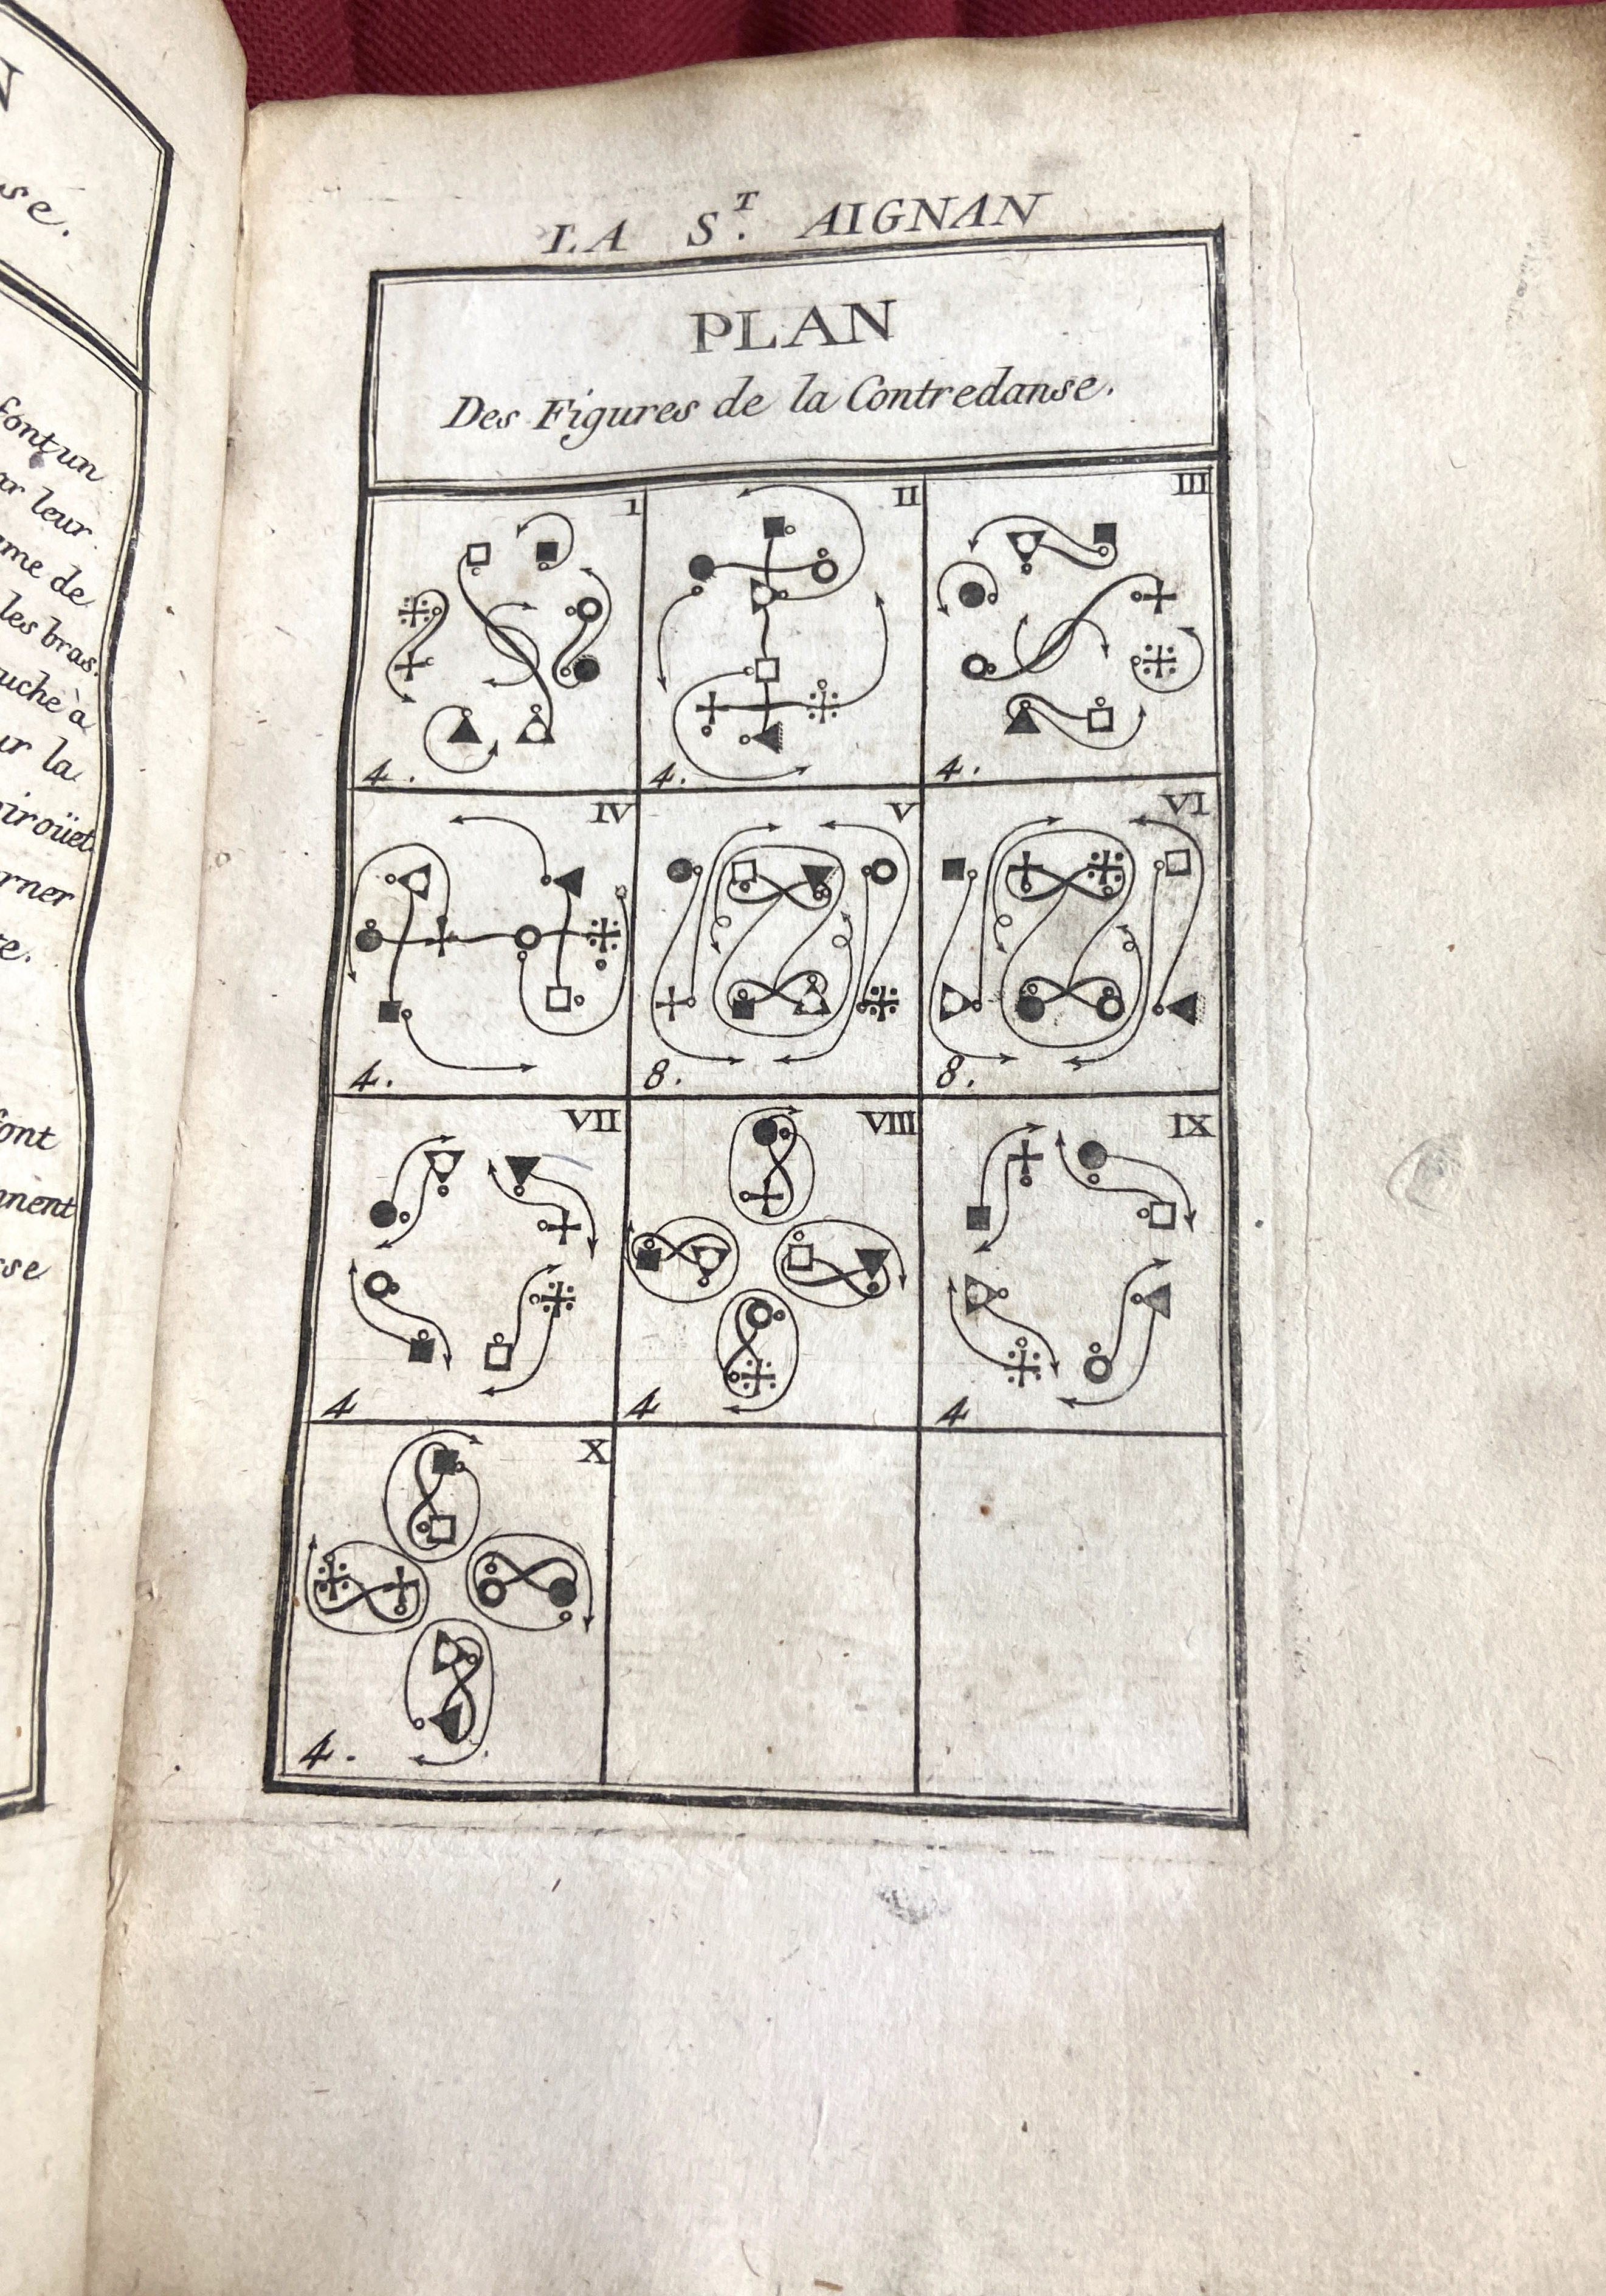 sé.
font un
ar leur
me de
les bras.
uche à
ur la
piroüet
rner
re.
font
nnent
sse
LA S.T AIGNAN
PLAN
Des Figures de la Contredanse.
I
II
III
4.
4.
4.
IV
V
VI
4.
8.
8.
VII
VIII
IX
4
4
4
X
4.